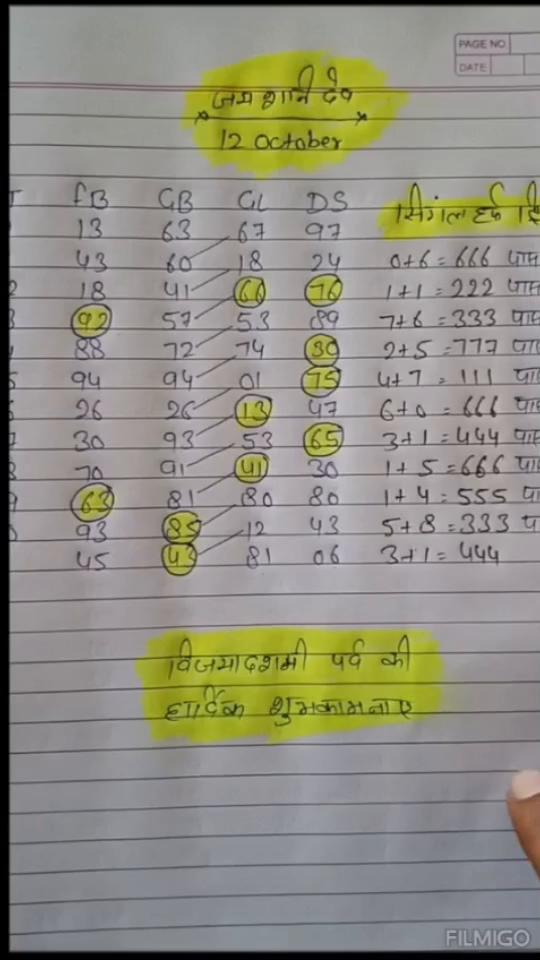 PAGE NO
DATE
जय शनि देव
12 October
FB GB GL DS सिंगल हर्फ
13 63 67 97
43 60 18 24 0+6=666 पास
18 41 66 76 1+1=222 पास
92 57 53 89 7+6=333 पास
88 72 74 30 2+5=777 पा
94 94 01 75 4+7=111 पा
26 26 13 47 6+0=666 पा
30 93 53 65 3+1=444 पास
70 91 41 30 1+5=666 पा
63 81 80 80 1+4=555 पा
93 85 12 43 5+8=333 प
45 43 81 06 3+1=444
विजयादशमी पर्व की
हार्दिक शुभकामनाए
FILMIGO